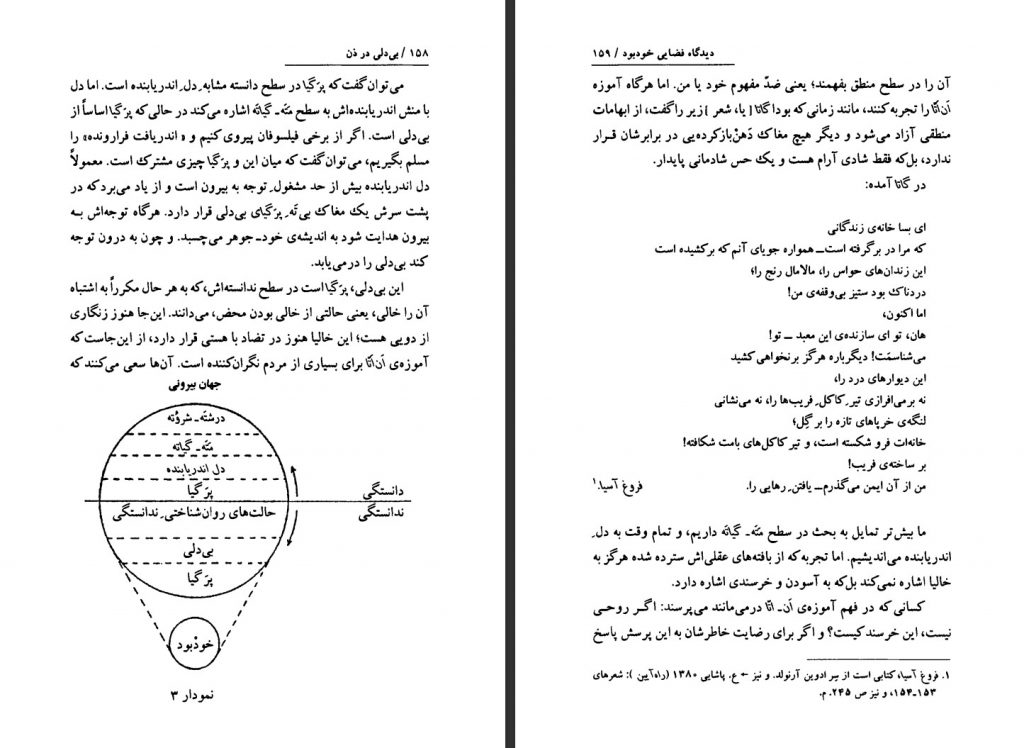 ۱۵۸ / بی‌دلی در ذن
می‌توان‌گفت‌که پرَگیا در سطح دانسته مشابه‌ِ دل‌ِ اندریابنده است. اما دل
با منش اندریابنده‌اش به سطح متَه‌ـ گیاته اشاره می‌کند در حالی‌که پرَگیا اساساً از
بی‌دلی است. اگر از برخی فیلسوفان پیروی‌کنیم و « اندریافت فرارونده» را
مسلم بگیریم، می‌توان‌گفت‌که میان این و پرَگیا چیزی مشترک است. معمولاً
دل اندریابنده بیش از حد مشغول‌ِ توجه به بیرون است و از یاد می‌بردکه در
پشت سرش یک مغاک بی‌تَه‌ِ پرَگیای بی‌دلی قرار دارد. هرگاه توجه‌اش به
بیرون هدایت شود به اندیشه‌ی خود‌ـ جوهر می‌چسبد. و چون به درون توجه
کند بی‌دلی را درمی‌یابد.
این بی‌دلی، پرَگیا‌ست در سطح ندانسته‌اش،که به هر حال مکرراً به اشتباه
آن را خالی، یعنی حالتی از خالی بودن محض، می‌دانند. این‌جا هنوز زنگاری
از دویی هست؛ این خالیا هنوز در تضاد با هستی قرار دارد، از این‌جاست که
آموزه‌ی اَن‌اتّا برای بسیاری از مردم نگران‌کننده است. آن‌ها سعی می‌کنند که
جهان بیرونی
درشته‌ـ شروُته
متَه‌ـ گیاته
دل اندریابنده
پرَگیا
دانستگی
ندانستگی
حالت‌های روان‌شناختی‌ِ ندانستگی
بی‌دلی
پرَگیا
خودْبود
نمودار ۳
دیدگاه فضایی خودبود / ۱۵۹
آن را در سطح منطق بفهمند؛ یعنی ضدّ مفهوم خود یا من. اما هرگاه آموزه
اَن‌اتّا را تجربه‌کنند، مانند زمانی‌که بوداگاتا [ یا، شعر ] زیر راگفت، از ابهامات
منطقی آزاد می‌شود و دیگر هیچ مغاک دَهنْ‌بازکرده‌یی در برابرشان قرار
ندارد، بل‌که فقط شادی آرام هست و یک حس شادمانی پایدار.
در گاتا آمده:
ای بسا خانه‌ی زندگانی
که مرا در برگرفته است‌ــ همواره جویای آنم که برکشیده است
این زندان‌های حواس را، مالامال رنج را؛
دردناک بود ستیز بی‌وقفه‌ی من!
اما اکنون،
هان، تو ای سازنده‌ی این معبد ــ تو!
می‌شناسمَت! دیگرباره هرگز برنخواهی‌کشید
این دیوارهای درد را،
نه برمی‌افرازی تیر‌ِ کاکل‌ِ فریب‌ها را، نه می‌نشانی
لنگه‌ی خرپاهای تازه را بر گِل؛
خانه‌ات فرو شکسته است، و تیرکاکل‌های بامت شکافته!
بر ساخته‌ی فریب!
من از آن ایمن می‌گذرم‌ــ یافتن‌ِ رهایی را. فروغ آسیا.۱
ما بیش‌تر تمایل به بحث در سطح متَه‌ـ گیاته داریم، و تمام وقت به دل‌ِ
اندریابنده می‌اندیشیم. اما تجربه‌که از بافته‌های عقلی‌اش سترده شده هرگز به
خالیا اشاره نمی‌کند بل‌که به آسودن و خرسندی اشاره دارد.
کسانی که در فهم آموزه‌ی اَن‌ـ اتّا درمی‌مانند می‌پرسند: اگر روحی
نیست، این خرسندکیست؟ و اگر برای رضایت خاطرشان به این پرسش پاسخ
۱. فروغ آسیا، کتابی است از سِر ادوین آرنولد. و نیز ← ع. پاشایی ۱۳۸۰ (راه‌آیین ): شعرهای
۱۵۳ـ۱۵۴، و نیز ص ۲۴۵. م.